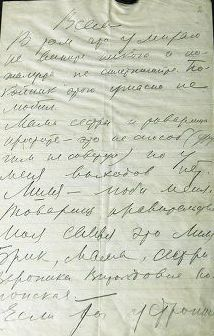 Всем
В том что умираю
не вините никого и по-
жалуйста не сплетничайте. По-
койник этого ужасно не
любил.
Мама сестры и товарищи
простите — это не способ (дру-
гим не советую) но у
меня выходов нет.
Лиля — люби меня.
Товарищ правительство
моя семья это Лиля
Брик, мама, сестры и
Вероника Витольдовна По-
лонская.
Если ты устроишь